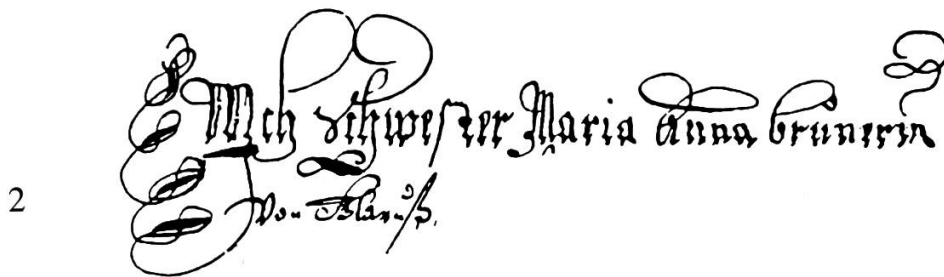 Mich Schwester Maria Anna brunerin
2 Von Glaruß.